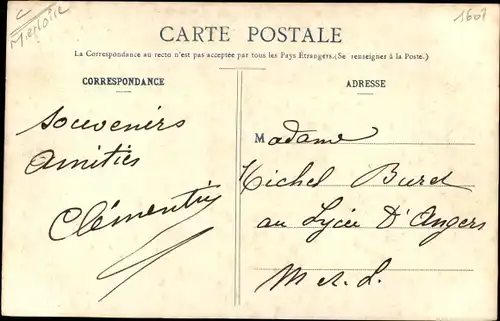 CARTE POSTALE
La Correspondance au recto n'est pas acceptée par tous les Pays Étrangers. (Se renseigner à la Poste.)
CORRESPONDANCE
ADRESSE
Souvenirs
Amitiés
Madame
Michel Buret
au Lycée D'Angers
M et L.